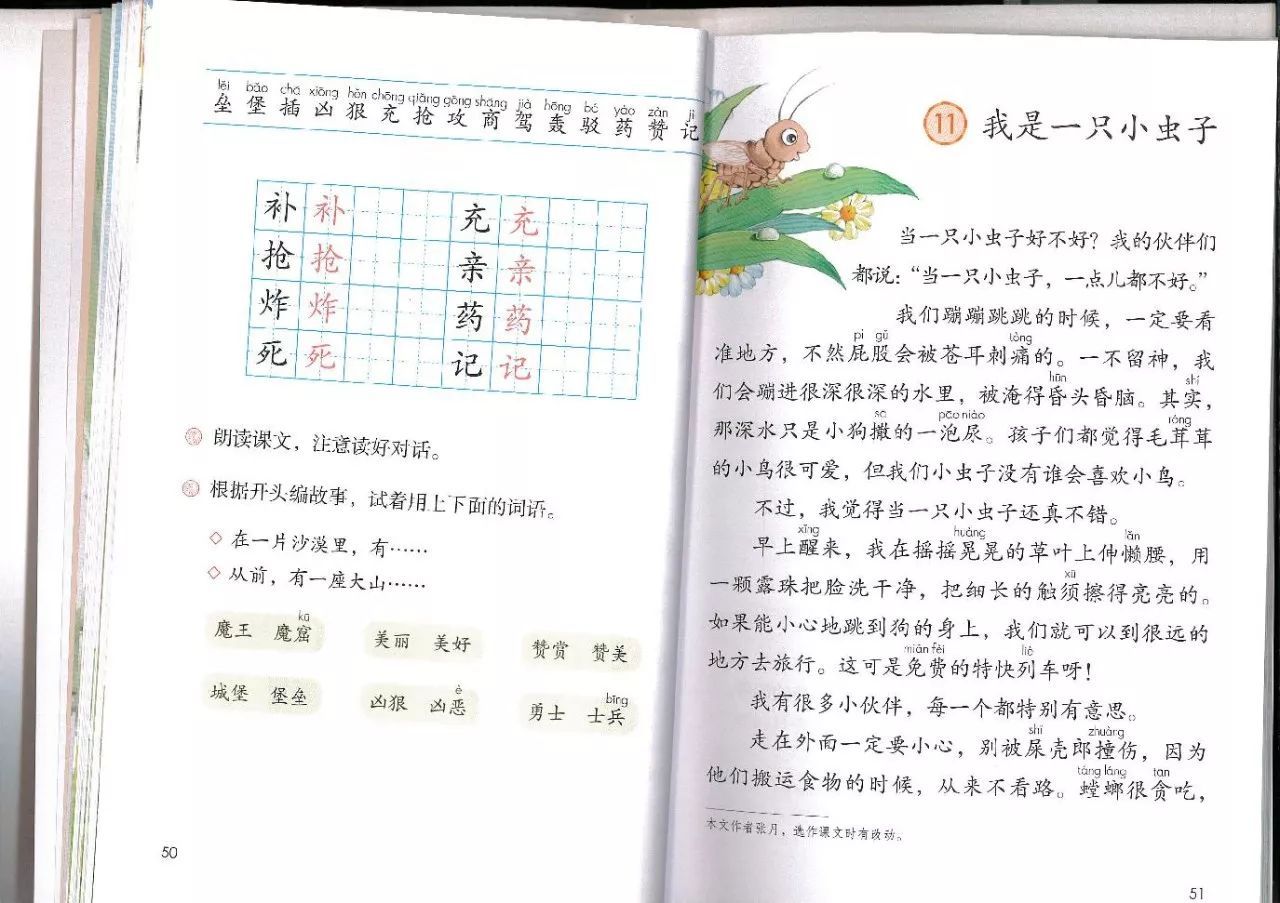 lěi bǎo chā xiōng hěn chōng qiǎng gōng shāng jià hōng bó yào zàn jì
垒 堡 插 凶 狠 充 抢 攻 商 驾 轰 驳 药 赞 记
补 补 充 充
抢 抢 亲 亲
炸 炸 药 药
死 死 记 记
朗读课文，注意读好对话。
根据开头编故事，试着用上下面的词语。
◇ 在一片沙漠里，有……
◇ 从前，有一座大山……
kū
魔王 魔窟 美丽 美好 赞赏 赞美
è bīng
城堡 堡垒 凶狠 凶恶 勇士 士兵
50
11 我是一只小虫子
当一只小虫子好不好？我的伙伴们
都说：“当一只小虫子，一点儿都不好。”
我们蹦蹦跳跳的时候，一定要看
pì gu tòng
准地方，不然屁股会被苍耳刺痛的。一不留神，我
hūn shí
们会蹦进很深很深的水里，被淹得昏头昏脑。其实，
sā pāo niào róng
那深水只是小狗撒的一泡尿。孩子们都觉得毛茸茸
的小鸟很可爱，但我们小虫子没有谁会喜欢小鸟。
不过，我觉得当一只小虫子还真不错。
xǐng huàng lǎn
早上醒来，我在摇摇晃晃的草叶上伸懒腰，用
xū
一颗露珠把脸洗干净，把细长的触须擦得亮亮的。
如果能小心地跳到狗的身上，我们就可以到很远的
miǎn fèi liè
地方去旅行。这可是免费的特快列车呀！
我有很多小伙伴，每一个都特别有意思。
shǐ zhuàng
走在外面一定要小心，别被屎壳郎撞伤，因为
táng láng tān
他们搬运食物的时候，从来不看路。螳螂很贪吃，
本文作者张月，选作课文时有改动。
51